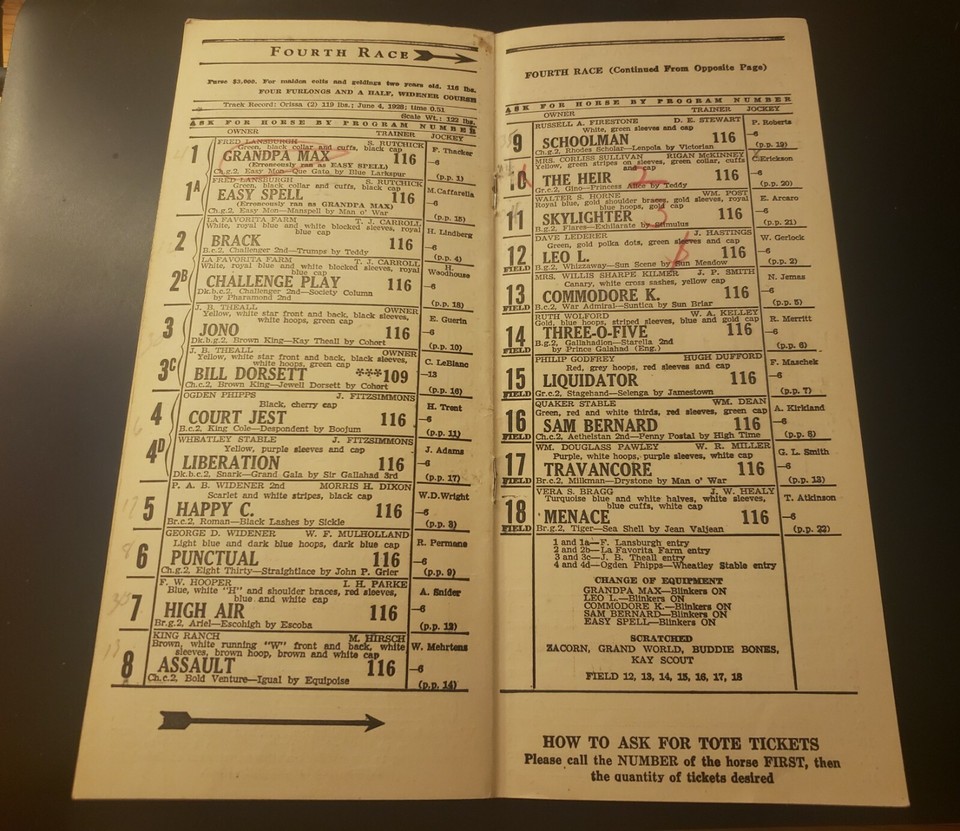 FOURTH RACE
Purse $3,000. For maiden colts and geldings two years old. 116 lbs.
FOUR FURLONGS AND A HALF, WIDENER COURSE
Track Record: Orissa (2) 119 lbs.; June 4, 1928; time 0.51
(Scale Wt.: 122 lbs.
ASK FOR HORSE BY PROGRAM NUMBER
OWNER TRAINER JOCKEY
FRED LANSBURGH S. RUTCHICK
Green, black collar and cuffs, black cap
1 GRANDPA MAX 116 F. Thacker —6
(Erroneously ran as EASY SPELL)
Ch.g.2, Easy Mon—Que Gato by Blue Larkspur (p.p. 1)
FRED LANSBURGH S. RUTCHICK
Green, black collar and cuffs, black cap
1A EASY SPELL 116 M. Caffarella —6
(Erroneously ran as GRANDPA MAX)
Ch.g.2, Easy Mon—Manspell by Man o' War (p.p. 15)
LA FAVORITA FARM T. J. CARROLL
White, royal blue and white blocked sleeves, royal
blue cap
2 BRACK 116 H. Lindberg —6
B.c.2, Challenger 2nd—Trumps by Teddy (p.p. 4)
LA FAVORITA FARM T. J. CARROLL
White, royal blue and white blocked sleeves, royal
blue cap
2B CHALLENGE PLAY 116 H. Woodhouse —6
Dk.b.c.2, Challenger 2nd—Society Column
by Pharamond 2nd (p.p. 18)
J. B. THEALL OWNER
Yellow, white star front and back, black sleeves,
white hoops, green cap
3 JONO 116 E. Guerin —6
Dk.b.g.2, Brown King—Kay Theall by Cohort (p.p. 10)
J. B. THEALL OWNER
Yellow, white star front and back, black sleeves,
white hoops, green cap
3C BILL DORSETT ***109 C. LeBlanc —13
Ch.c.2, Brown King—Jewell Dorsett by Cohort (p.p. 16)
OGDEN PHIPPS J. FITZSIMMONS
Black, cherry cap
4 COURT JEST 116 H. Trent —6
B.c.2, King Cole—Despondent by Boojum (p.p. 11)
WHEATLEY STABLE J. FITZSIMMONS
Yellow, purple sleeves and cap
4D LIBERATION 116 J. Adams —6
Dk.b.c.2, Snark—Grand Gala by Sir Gallahad 3rd (p.p. 17)
P. A. B. WIDENER 2nd MORRIS H. DIXON
Scarlet and white stripes, black cap
5 HAPPY C. 116 W.D.Wright —6
Br.c.2, Roman—Black Lashes by Sickle (p.p. 3)
GEORGE D. WIDENER W. F. MULHOLLAND
Light blue and dark blue hoops, dark blue cap
6 PUNCTUAL 116 R. Permane —6
Ch.g.2, Eight Thirty—Straightlace by John P. Grier (p.p. 9)
F. W. HOOPER I. H. PARKE
Blue, white "H" and shoulder braces, red sleeves,
blue and white cap
7 HIGH AIR 116 A. Snider —6
Br.g.2, Ariel—Escohigh by Escoba (p.p. 12)
KING RANCH M. HIRSCH
Brown, white running "W" front and back, white
sleeves, brown hoop, brown and white cap
8 ASSAULT 116 W. Mehrtens —6
Ch.c.2, Bold Venture—Igual by Equipoise (p.p. 14)
FOURTH RACE (Continued From Opposite Page)
ASK FOR HORSE BY PROGRAM NUMBER
OWNER TRAINER JOCKEY
RUSSELL A. FIRESTONE D. E. STEWART
White, green sleeves and cap
9 SCHOOLMAN 116 P. Roberts —6
Ch.g.2, Rhodes Scholar—Lenpola by Victorian (p.p. 19)
MRS. CORLISS SULLIVAN RIGAN McKINNEY
Yellow, green stripes on sleeves, green collar, cuffs
and cap
10 THE HEIR 116 C.Erickson —6
Gr.c.2, Gino—Princess Alice by Teddy (p.p. 20)
WALTER S. HORNE WM. POST
Royal blue, gold shoulder braces, gold sleeves, royal
blue hoops, gold cap
11 SKYLIGHTER 116 E. Arcaro —6
B.g.2, Flares—Exhilarate by Stimulus (p.p. 21)
DAVE LEDERER J. HASTINGS
Green, gold polka dots, green sleeves and cap
12 FIELD LEO L. 116 W. Gerlock —6
B.g.2, Whiszaway—Sun Scene by Sun Meadow (p.p. 2)
MRS. WILLIS SHARPE KILMER J. P. SMITH
Canary, white cross sashes, yellow cap
13 FIELD COMMODORE K. 116 N. Jemas —6
B.c.2, War Admiral—Suntica by Sun Briar (p.p. 5)
RUTH WOLFORD W. A. KELLEY
Gold, blue hoops, striped sleeves, blue and gold cap
14 FIELD THREE-O-FIVE 116 R. Merritt —6
B.g.2, Gallahadion—Starella 2nd
by Prince Galahad (Eng.) (p.p. 6)
PHILIP GODFREY HUGH DUFFORD
Red, grey hoops, red sleeves and cap
15 FIELD LIQUIDATOR 116 F. Maschek —6
Gr.c.2, Stagehand—Selenga by Jamestown (p.p. 7)
QUAKER STABLE WM. DEAN
Green, red and white thirds, red sleeves, green cap
16 FIELD SAM BERNARD 116 A. Kirkland —6
Ch.c.2, Aethelstan 2nd—Penny Postal by High Time (p.p. 8)
WM. DOUGLASS PAWLEY W. R. MILLER
Purple, white hoops, purple sleeves, white cap
17 FIELD TRAVANCORE 116 G. L. Smith —6
Br.c.2, Milkman—Drystone by Man o' War (p.p. 13)
VERA S. BRAGG J. W. HEALY
Turquoise blue and white halves, white sleeves,
blue cuffs, white cap
18 FIELD MENACE 116 T. Atkinson —6
Br.g.2, Tiger—Sea Shell by Jean Valjean (p.p. 22)
1 and 1a—F. Lansburgh entry
2 and 2b—La Favorita Farm entry
3 and 3c—J. B. Theall entry
4 and 4d—Ogden Phipps—Wheatley Stable entry
CHANGE OF EQUIPMENT
GRANDPA MAX—Blinkers ON
LEO L.—Blinkers ON
COMMODORE K.—Blinkers ON
SAM BERNARD—Blinkers ON
EASY SPELL—Blinkers ON
SCRATCHED
ZACORN, GRAND WORLD, BUDDIE BONES,
KAY SCOUT
FIELD 12, 13, 14, 15, 16, 17, 18
HOW TO ASK FOR TOTE TICKETS
Please call the NUMBER of the horse FIRST, then
the quantity of tickets desired